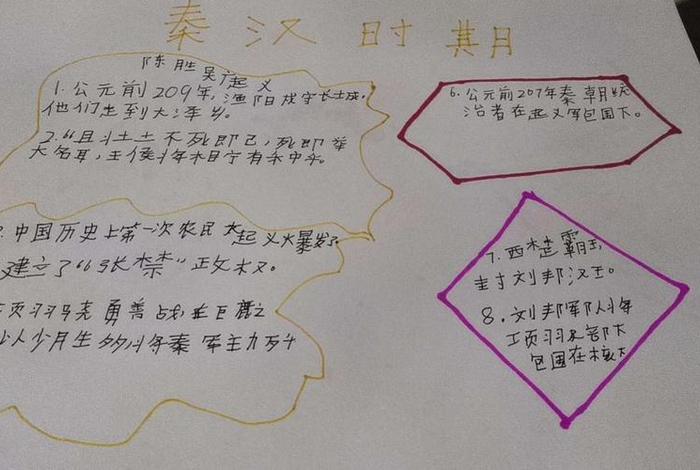 秦汉时期
陈胜吴广起义
1.公元前209年,渔阳戍守长士成,
他们走到大泽乡。
2."且斗士土不死即已,死即举
大名耳,王侯将相宁有
中国历史上第一次农民大起义大暴发了
建立了"张楚"政权。
项羽勇善战,在巨鹿之
以少月生多将秦军主力歼
6.公元前207年秦朝统
治者在起义军包围下。
7.西楚霸王
封刘邦汉王。
8.刘邦军队将
项羽及部下
包围在核下